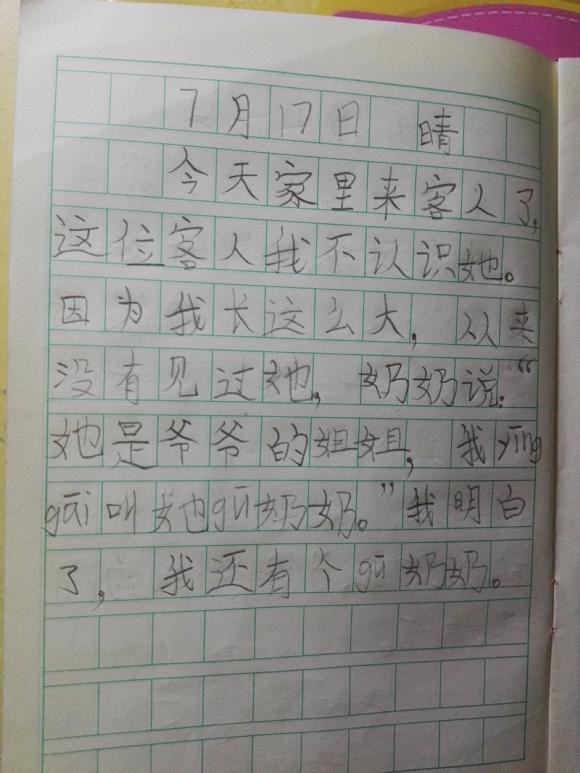 7月17日 晴
今天家里来客人了,
这位客人我不认识她。
因为我长这么大,从来
没有见过她,奶奶说:“
她是爷爷的姐姐,我yīng
gāi叫她gū奶奶。”我明白
了,我还有个gū奶奶。